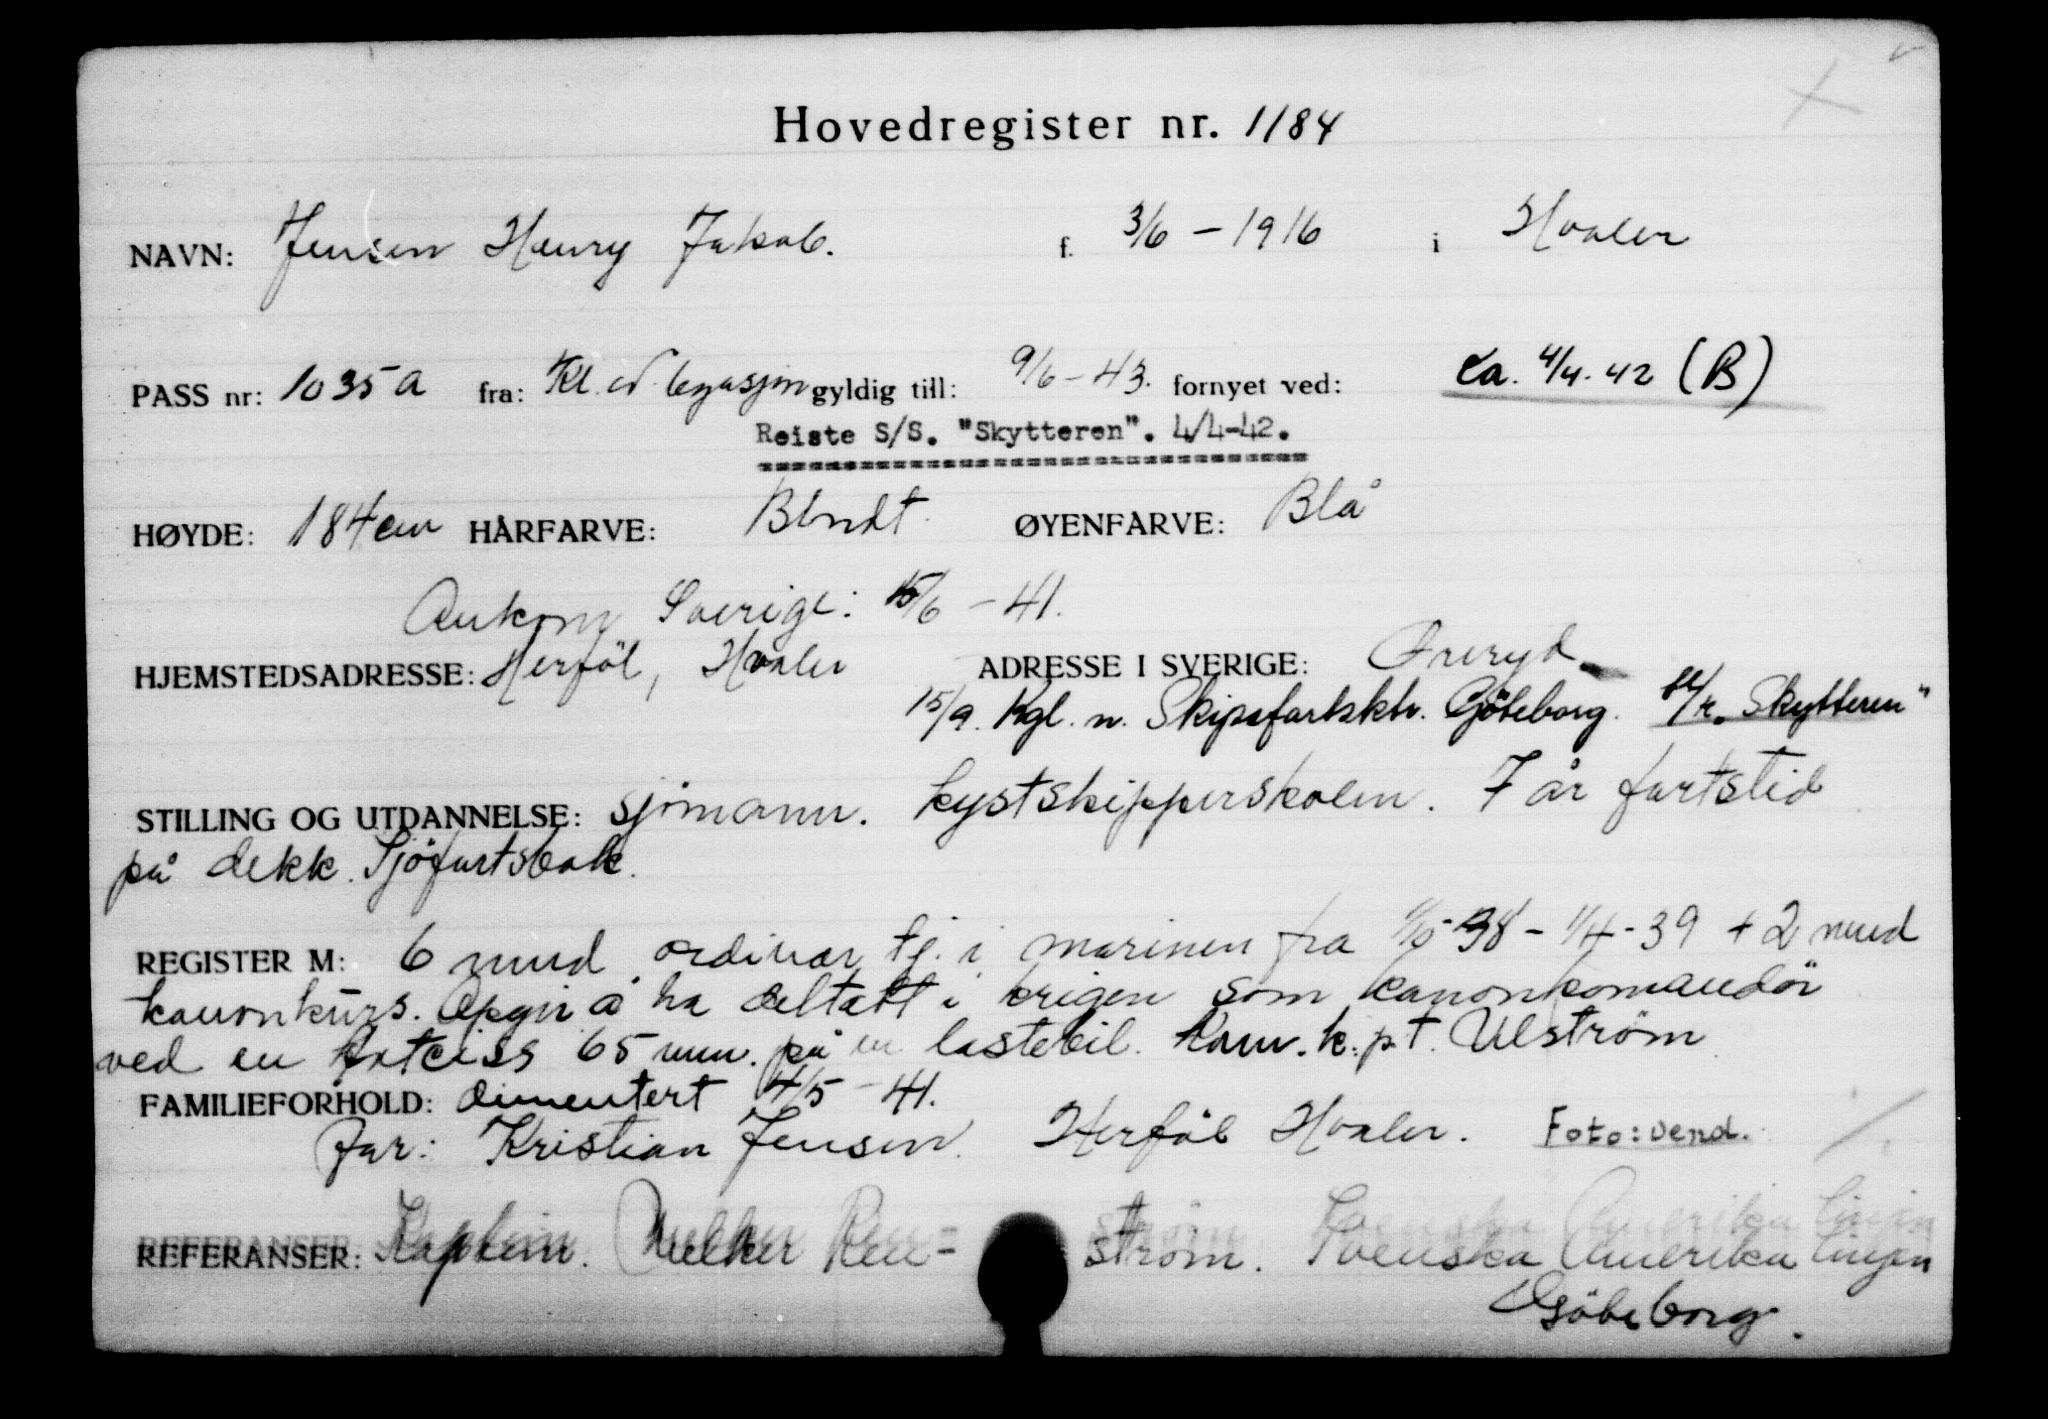 Hovedregister nr. 1184
NAVN: Jensen Henry Jakob. f. 3/6 - 1916 i Hvaler
PASS nr: 1035a fra: Kl. N. legasjon gyldig till: 9/6 - 43. fornyet ved: ca. 4/4. 42 (B)
Reiste S/S. "Skytteren". 4/4-42.
HØYDE: 184 cm HÅRFARVE: Blondt. ØYENFARVE: Blå
Ankom Sverige: 15/6 - 41.
HJEMSTEDSADRESSE: Herföl, Hvaler ADRESSE I SVERIGE: Öreryd
15/9. Kgl. n. Skipsfartsktr. Göteborg. "Skytteren"
STILLING OG UTDANNELSE: Sjömann. Kystskipperskolen. 7 år fartstid
på dekk. Sjöfartsbok.
REGISTER M: 6 mnd ordinær tj. i marinen fra 1/10-38 - 1/4-39 + 2 mnd
kanonkurs. Opgir å ha deltatt i krigen som kanonkomandör
ved en 65 mm. på en lastebil. k.pt. Ulström
FAMILIEFORHOLD: dimentert 4/5 - 41.
Far: Kristian Jensen. Herföl Hvaler. Foto: vend.
REFERANSER: Kaptein. Ren-ström. Svenska Amerika linjen
Göteborg.